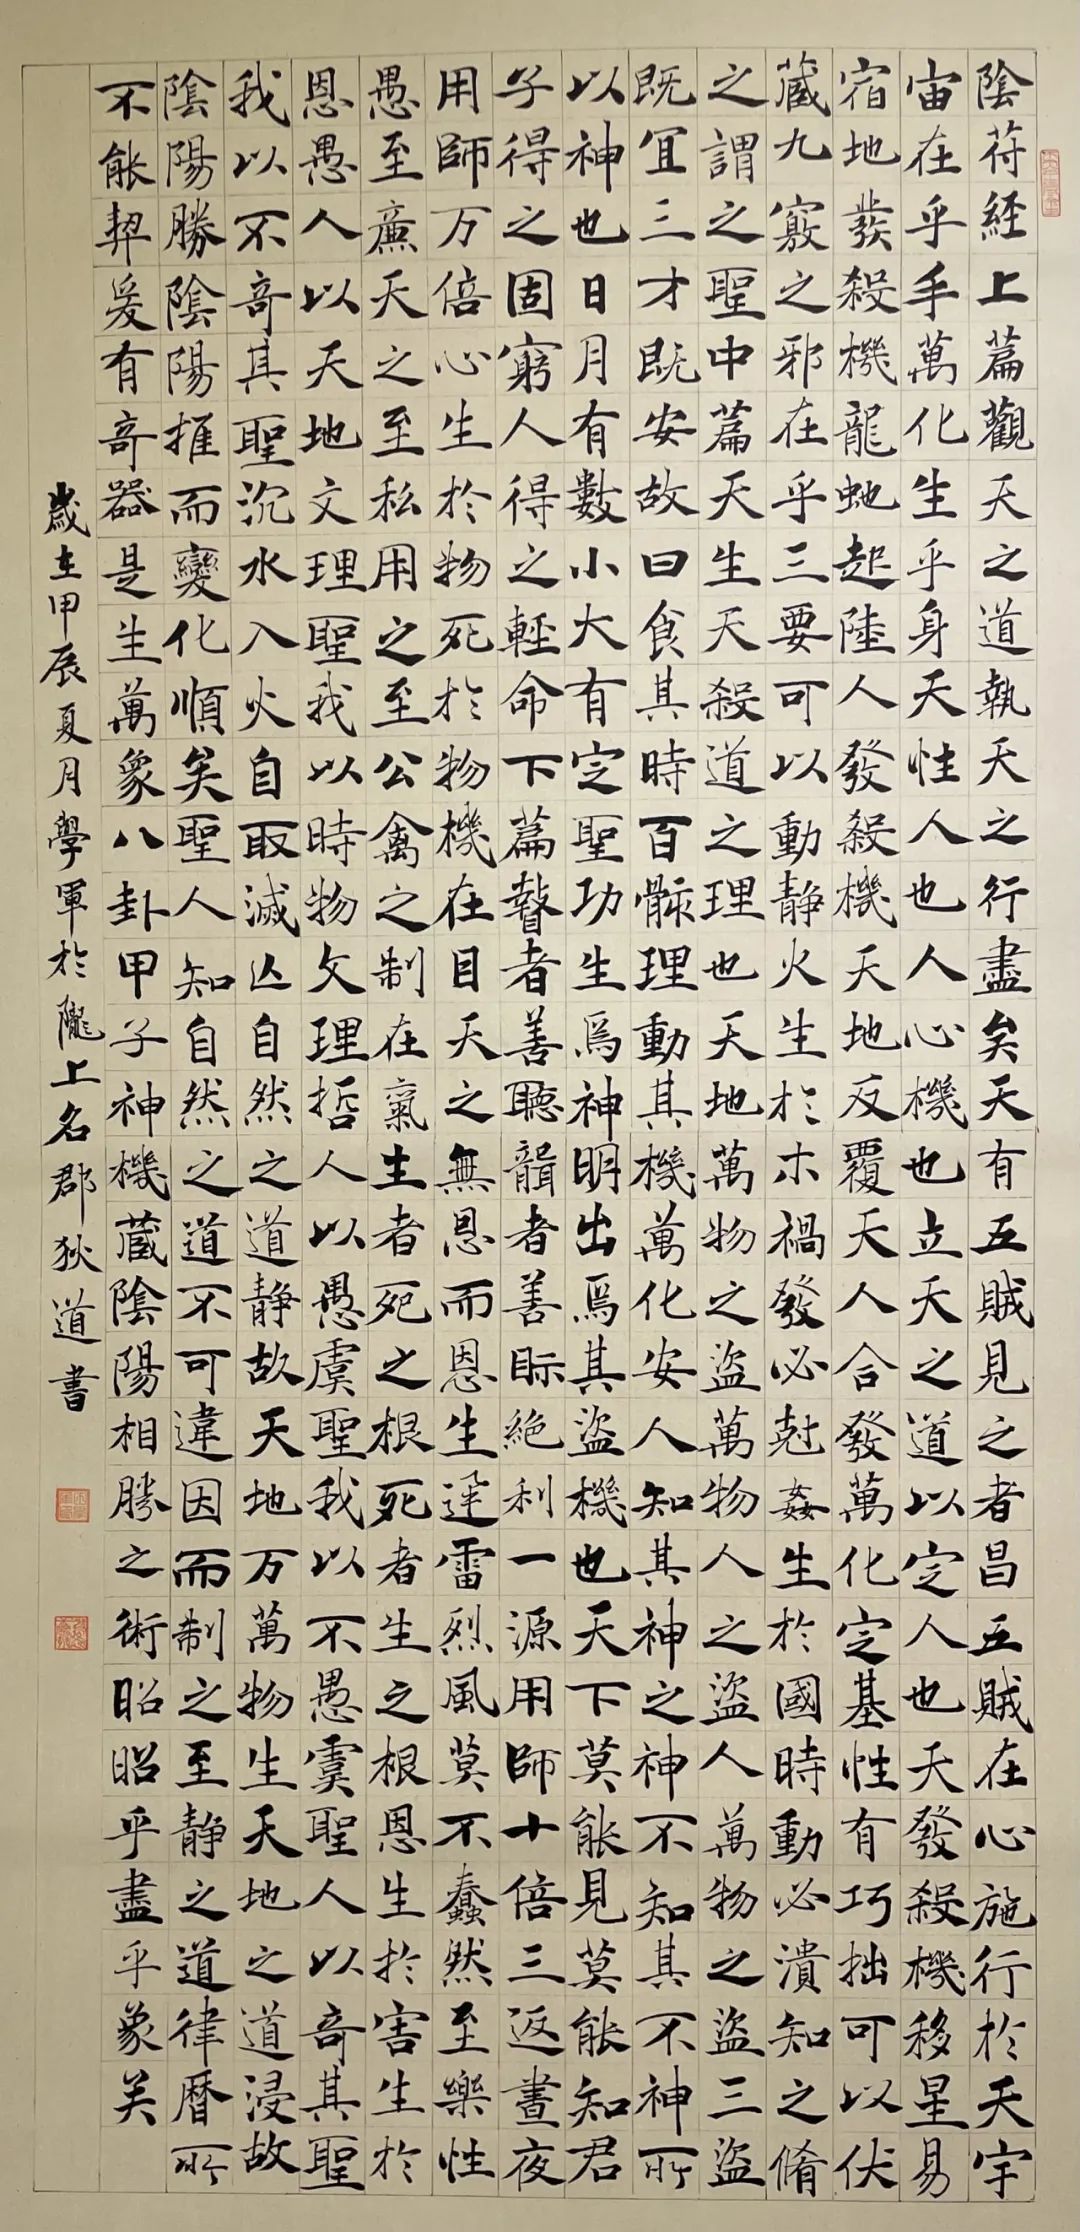 陰符経上篇觀天之道執天之行盡矣天有五賊見之者昌五賊在心施行於天宇
宙在乎手萬化生乎身天性人也人心機也立天之道以定人也天發殺機移星易
宿地發殺機龍虵起陸人發殺機天地反覆天人合發萬化定基性有巧拙可以伏
蔵九竅之邪在乎三要可以動静火生於木禍發必尅姦生於國時動必潰知之脩
之謂之聖中篇天生天殺道之理也天地萬物之盜萬物人之盜人萬物之盜三盜
既宜三才既安故曰食其時百骸理動其機萬化安人知其神之神不知其不神所
以神也日月有數小大有定聖功生焉神明出焉其盜機也天下莫能見莫能知君
子得之固窮人得之輕命下篇瞽者善聽聾者善眎絶利一源用師十倍三返晝夜
用師万倍心生於物死於物機在目天之無恩而恩生迅雷烈風莫不蠢然至樂性
愚至廉天之至私用之至公禽之制在氣生者死之根死者生之根恩生於害生於
恩愚人以天地文理聖我以時物文理哲人以愚虞聖我以不愚虞聖人以奇其聖
我以不奇其聖沉水入火自取滅亡自然之道静故天地万萬物生天地之道浸故
陰陽勝陰陽推而變化順矣聖人知自然之道不可違因而制之至静之道律暦所
不能契爰有奇器是生萬象八卦甲子神機蔵陰陽相勝之術昭昭乎盡乎象矣
歲在甲辰夏月學軍於隴上名郡狄道書